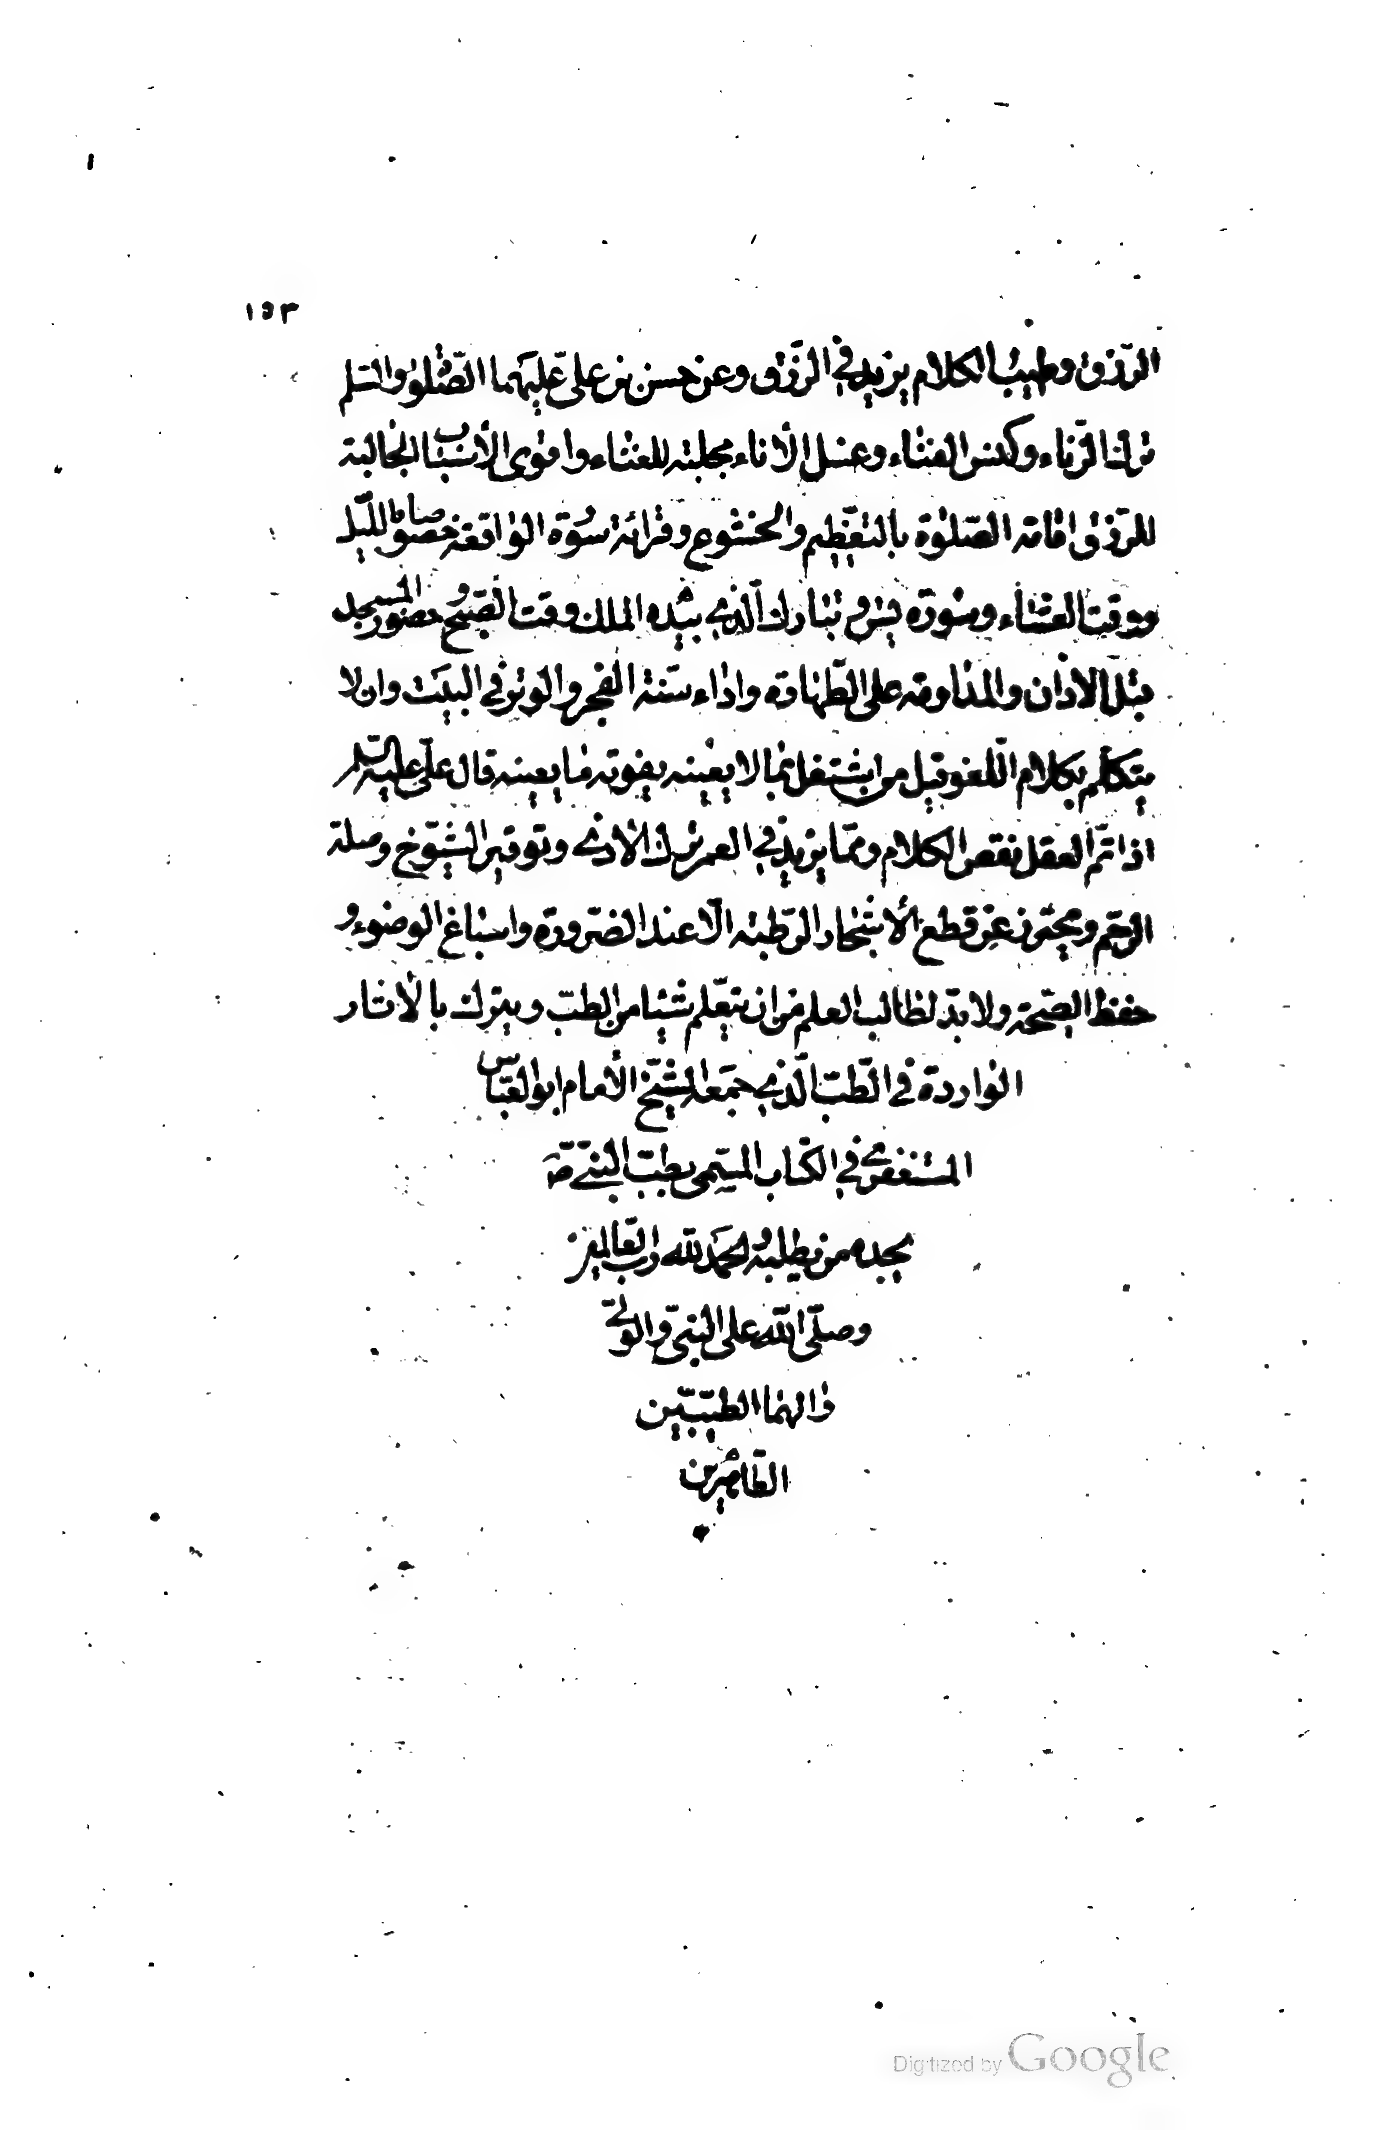 ١٥٣
الرّزق وطيب الكلام يزيد في الرّزق وعن حسن بن علىّ عليهما الصّلوة والسّلم
ترك الزّناء وكنس الفناء وغسل الأناء مجلبة للغناء واقوى الأسباب الجالبة
للرّزق اقامة الصّلوة بالتعظيم والخشوع وقرائة سورة الواقعة خصوصا بالليل
ووقت العشاء وسورة يس وتبارك الّذي بيده الملك وقت الصّبح وحضور المسجد
قبل الأذان والمداومة على الطّهارة واداء سنة الفجر والوتر في البيت وان لا
يتكلّم بكلام اللّغو قيل من اشتغل بما لا يعينه يفوته ما يعينه قال علىّ عليه السّلم
اذا تمّ العقل نقص الكلام وممّا يزيد في العمر ترك الأذى وتوقير الشيّوخ وصلة
الرّحم ويحترز عن قطع الأشجار الرّطبة الّا عند الضّرورة واسباغ الوضوء و
حفظ الصّحة ولا بدّ لطالب العلم من ان يتعلّم شيئا من الطّب ويترك بالأثار
الواردة في الطّبّ الّذي جمعه الشّيخ الأمام ابو العبّاس
المستغفري في الكتاب المسمّى بطبّ النّبيّ صَ
يجده من يطلبه والحمد لله ربّ العالمين
وصلّى الله على النبىّ والولّى
والهما الطيّبين
الطّاهرين
Digitized by Google